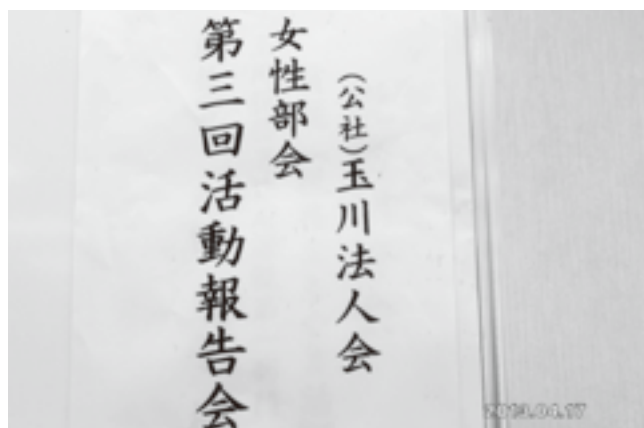 (公社)玉川法人会
女性部会
第三回活動報告会
2013.04.17